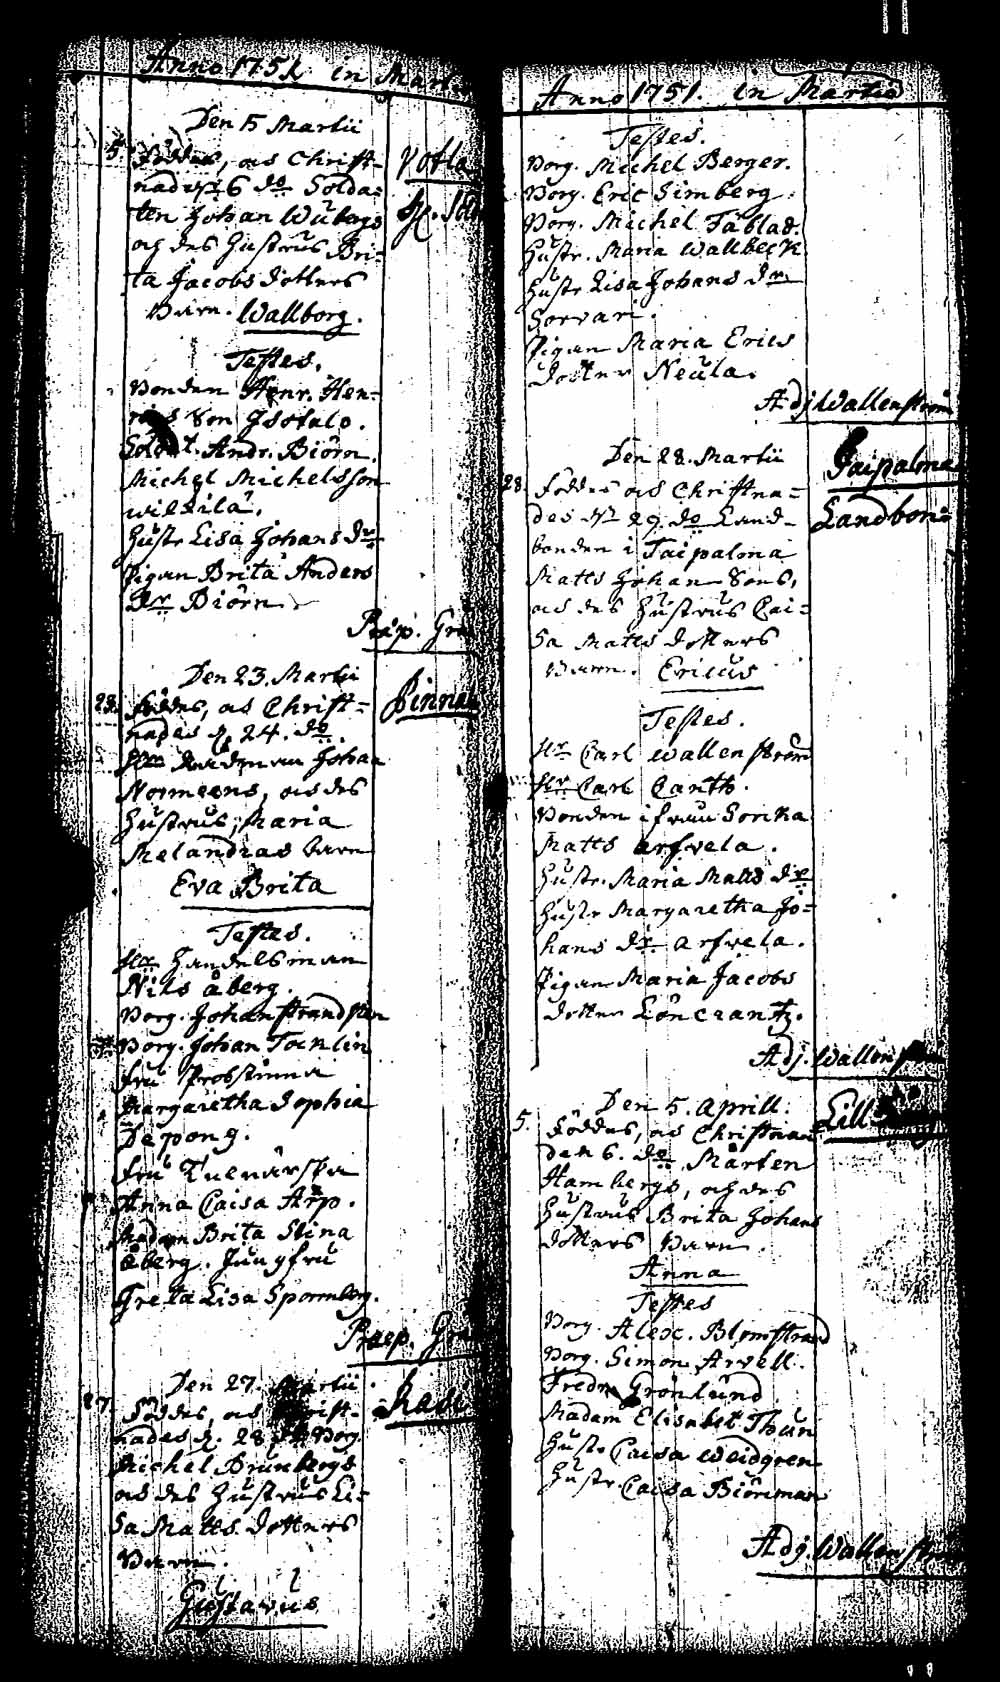 Anno 1751. in Mart
Den 15 Martii
5. Föddes, och Christ-
nades d. 16 do Solda-
ten Johan Wibergs
och des Hustrus Bri-
ta Jacobs dotters
Barn. Wallborg.
Testes.
Bonden Henr. Hen-
rics Son Isotalo.
Soldat. Andr. Biörn.
Michel Michelsson
wiltilä.
Hustr Lisa Johans dr
Pigan Brita Anders
dr Biörn
Præp. Gra
Den 23. Martii
23. Föddes, och Christ-
nades d. 24. do.
Johan
Normeens, och des
Hustrus, Maria
Melandras barn
Eva Brita
Testes.
Hr Handelsman
Nils Åberg.
Borg. Johan Strandsten
Borg. Johan Tocklin
Fru Probstinna
Margaretha Sophia
Depong.
Fru
Anna Caisa Arp.
Madam Brita Stina
Åberg. Jungfru
Greta Lisa Sporrnborg.
Præp. Gra
Den 27. Martii
27. Föddes, och Christ-
nades d. 28 do Borg.
Michel Brunbergs
och des Hustrus Li-
sa Matts dotters
Barn.
Gustavus
Anno 1751. in Martio
Testes.
Borg. Michel Berger.
Borg. Eric Simberg.
Borg. Michel Täblad.
Hustr. Maria Wallbeck
Hustr Lisa Johans dr
Sorvari.
Pigan Maria Erics
dotter Neula.
Adj. Wallenström
Den 28. Martii
Taipalma
28. Föddes och Christna-
des d. 29. do Land-
Landbon
bonden i Taipalma
Matts Johan Sons,
och des Hustrus Cai-
sa Matts dotters
Barn. Ericus
Testes.
Hr Carl Wallenström
Hr Carl Canth.
Bonden ifrån Sorcka
Matts Arfvela.
Hustr. Maria Matts dr
Hustr Margaretha Jo-
hans dr Arfvela.
Pigan Maria Jacobs
dotter Löncrantz.
Adj. Wallenström
Den 5. Aprill.
Lill
5. Föddes, och Christnad
den 6. do Mårten
Hambergs, och des
Hustrus Brita Johans
dotters Barn
Anna
Testes
Borg. Alex. Blomstrand
Borg. Simon Arvell.
Fredr Grönlund
Madam Elisabet Thun
Hustr Caisa Weidgren
Hustr Caisa Biörkman
Adj. Wallenström